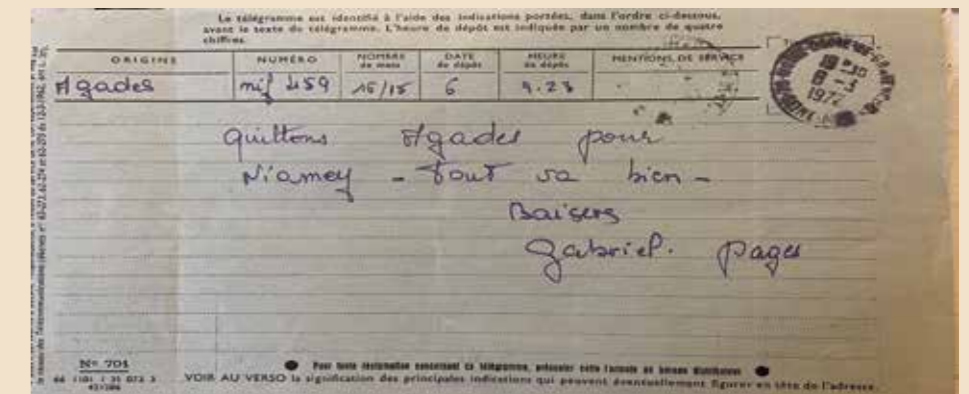 Le télégramme est identifié à l'aide des indications portées, dans l'ordre ci-dessous,
avant le texte du télégramme. L'heure de dépôt est indiquée par un nombre de quatre
chiffres.
ORIGINE NUMÉRO NOMBRE de mots DATE de dépôt HEURE de dépôt MENTIONS DE SERVICE
Agades 459 15/15 6 9.23
6-3
1972
quittons Agades pour
Niamey - Tout va bien -
Baisers
Gabriel. Pages
N° 701
Pour toute réclamation concernant ce télégramme, présenter cette formule au bureau distributeur
VOIR AU VERSO la signification des principales indications qui peuvent éventuellement figurer en tête de l'adresse.